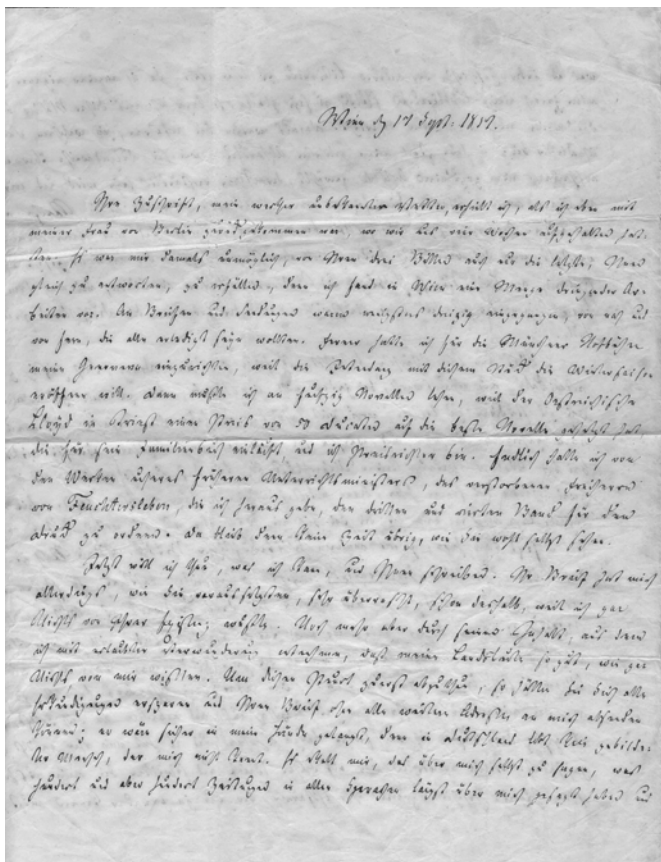 Wien d 17 Sept. 1851.
Ihre Zuschrift, mein werther unbekannter Vetter, erhielt ich, als ich eben mit
meiner Frau von Berlin zurückgekommen war, wo wir uns vier Wochen aufgehalten hat-
ten. Es war mir damals unmöglich, von Ihren drei Bitten auch nur die letzte, Ihnen
gleich zu antworten, zu erfüllen, denn ich fand in Wien eine Menge dringender Ar-
beiten vor. An Briefen und Sendungen waren wenigstens dreißig eingegangen, von nah und
von fern, die alle erledigt seyn wollten. Ferner hatte ich für die Münchner Hofbühne
meine Genoveva einzurichten, weil die Intendanz mit diesem Stück die Wintersaison
eröffnen will. Dann mußte ich an funfzig Novellen lesen, weil der Oestreichische
Lloyd in Triest einen Preis von 50 Ducaten auf die beste Novelle gesetzt hat,
die für sein Familienbuch einläuft, und ich Preisrichter bin. Endlich hatte ich von
den Werken unseres früheren Unterrichtsministers, des verstorbenen Freiherrn
von Feuchtersleben, die ich heraus gebe, den dritten und vierten Band für den
Druck zu ordnen. Da blieb denn keine Zeit übrig, wie Sie wohl selbst sehen.
Jetzt will ich thun, was ich kann, und Ihnen schreiben. Ihr Brief hat mich
allerdings, wie Sie voraussetzten, sehr überrascht, schon deshalb, weil ich gar
Nichts von Ihrer Existenz wußte. Noch mehr aber durch seinen Inhalt, aus dem
ich mit erlaubter Verwunderung entnehme, daß meine Landsleute so gut, wie gar
Nichts von mir wissen. Um diesen Punct zuerst abzuthun, so hätten Sie sich alle
Erkundigungen ersparen und Ihren Brief ohne alle weitere Adresse an mich absenden
können; er wäre sicher in meine Hände gelangt, denn in Deutschland lebt kein gebilde-
ter Mensch, der mich nicht kennt. Es steht mir, das über mich selbst zu sagen, was
hundert und aber hundert Zeitungen in allen Sprachen längst über mich gesagt haben und